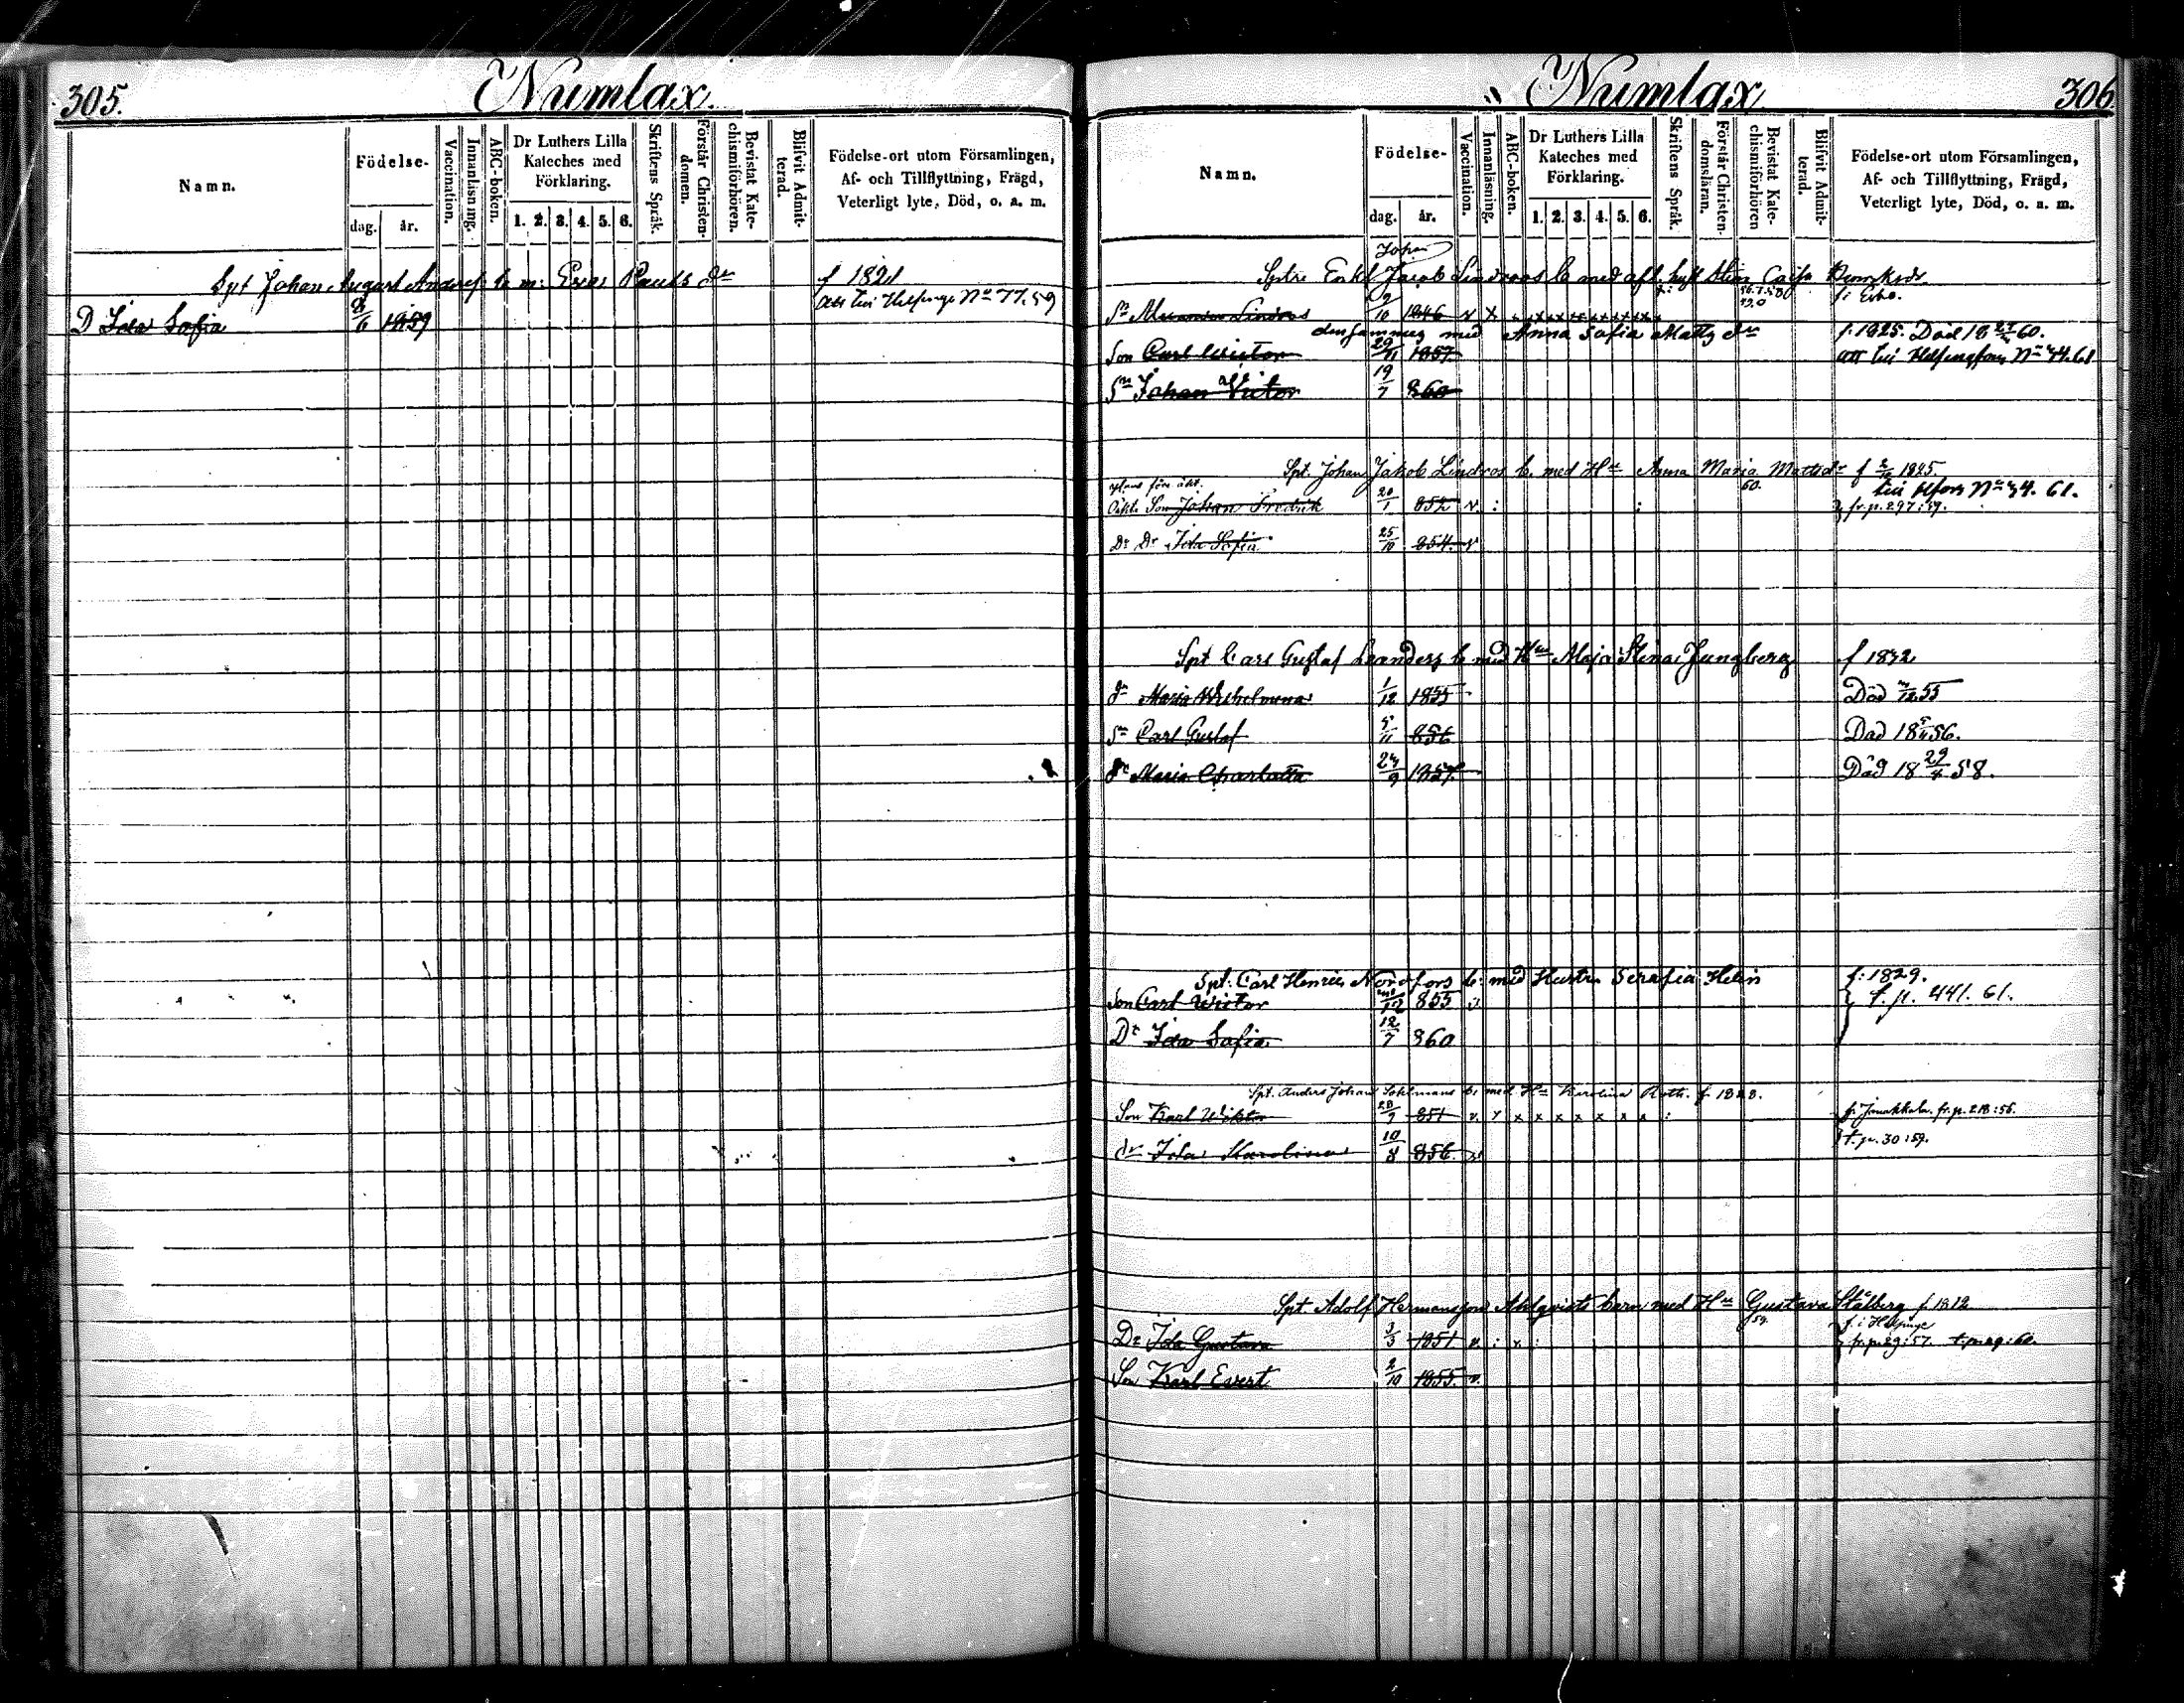 305.
Numlax.
Namn.
Födelse-
dag.
år.
Vaccination.
Innanläsning.
ABC-boken.
Dr Luthers Lilla
Kateches med
Förklaring.
1. 2. 3. 4. 5. 6.
Skriftens Språk.
Förstår Christen-
domen.
Bevistat Kate-
chismiförhören.
Blifvit Admit-
terad.
Födelse-ort utom Församlingen,
Af- och Tillflyttning, Frägd,
Veterligt lyte, Död, o. a. m.
Spt Johan August Anders b. m. Pauls dr f 1821
D Ida Sofia 6 1859 till Helsinge No 77.59
Numlax
306.
Namn.
Födelse-
dag.
år.
Vaccination.
Innanläsning.
ABC-boken.
Dr Luthers Lilla
Kateches med
Förklaring.
1. 2. 3. 4. 5. 6.
Skriftens Språk.
Förstår Christen-
domsläran.
Bevistat Kate-
chismiförhören
Blifvit Admit-
terad.
Födelse-ort utom Församlingen,
Af- och Tillflyttning, Frägd,
Veterligt lyte, Död, o. a. m.
Johan
Enkl Jacob Lindroos b med afl. hust Stina Caisa
Sn Lindros 10 1846 v x f: Esbo.
densammes med Anna Sofia Matts dr f. 1825. Död 18 60.
Son Carl Victor 29/11 1857 till Helsingfors No 34.61
Sn Johan Victor 19/7 860
Spt. Johan Jakob Lindros b. med Hu Anna Maria Mattsdr f 1825.
60. till Hfors No 34. 61.
Son Johan Fredrik 20/1 852 v : : fr. p. 297:59.
Dr Ida Sofia 25/10 854. v
Spt Carl Gustaf Leanders b med Hu Maja Stina Jungberg f 1832
dr Maria Wilhelmina 1/12 1855 Död 12 55
Sn Carl Gustaf 5/11 856 Död 18 56.
dr Maria Charlotta 9 1857 Död 18 29 58.
Spt. Carl Henric Nordfors b. med Hustru Serafia Helin f. 1829.
Son Carl Wictor 12 855 v t. p. 441. 61.
Dr Ida Sofia 12/7 860
Spt. Anders Johan Sohlmans b. med Hu Karolina Roth. f. 1828.
Son Karl Wiktor 28/7 851 v. x x x x x x x x : f. Janakkala. fr. p. 218:56.
dr Ida Karolina 10/8 856. v t. p. 30:59.
Spt. Adolf Hermansson Ahlqvists barn med Hu Gustava Stålberg f. 1812
59. f. i Helsinge
Dr Ida Gustava 3/3 1851 v. : x : fr. p. 29:57. t. p. 29:60.
Son Karl Evert 2/10 1855. v.